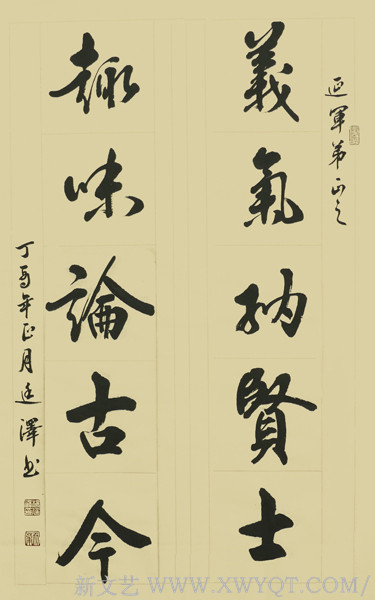 延軍弟正之
義氣納賢士
趣味論古今
丁酉年正月廷澤书
新文艺 WWW.XWYQT.COM/